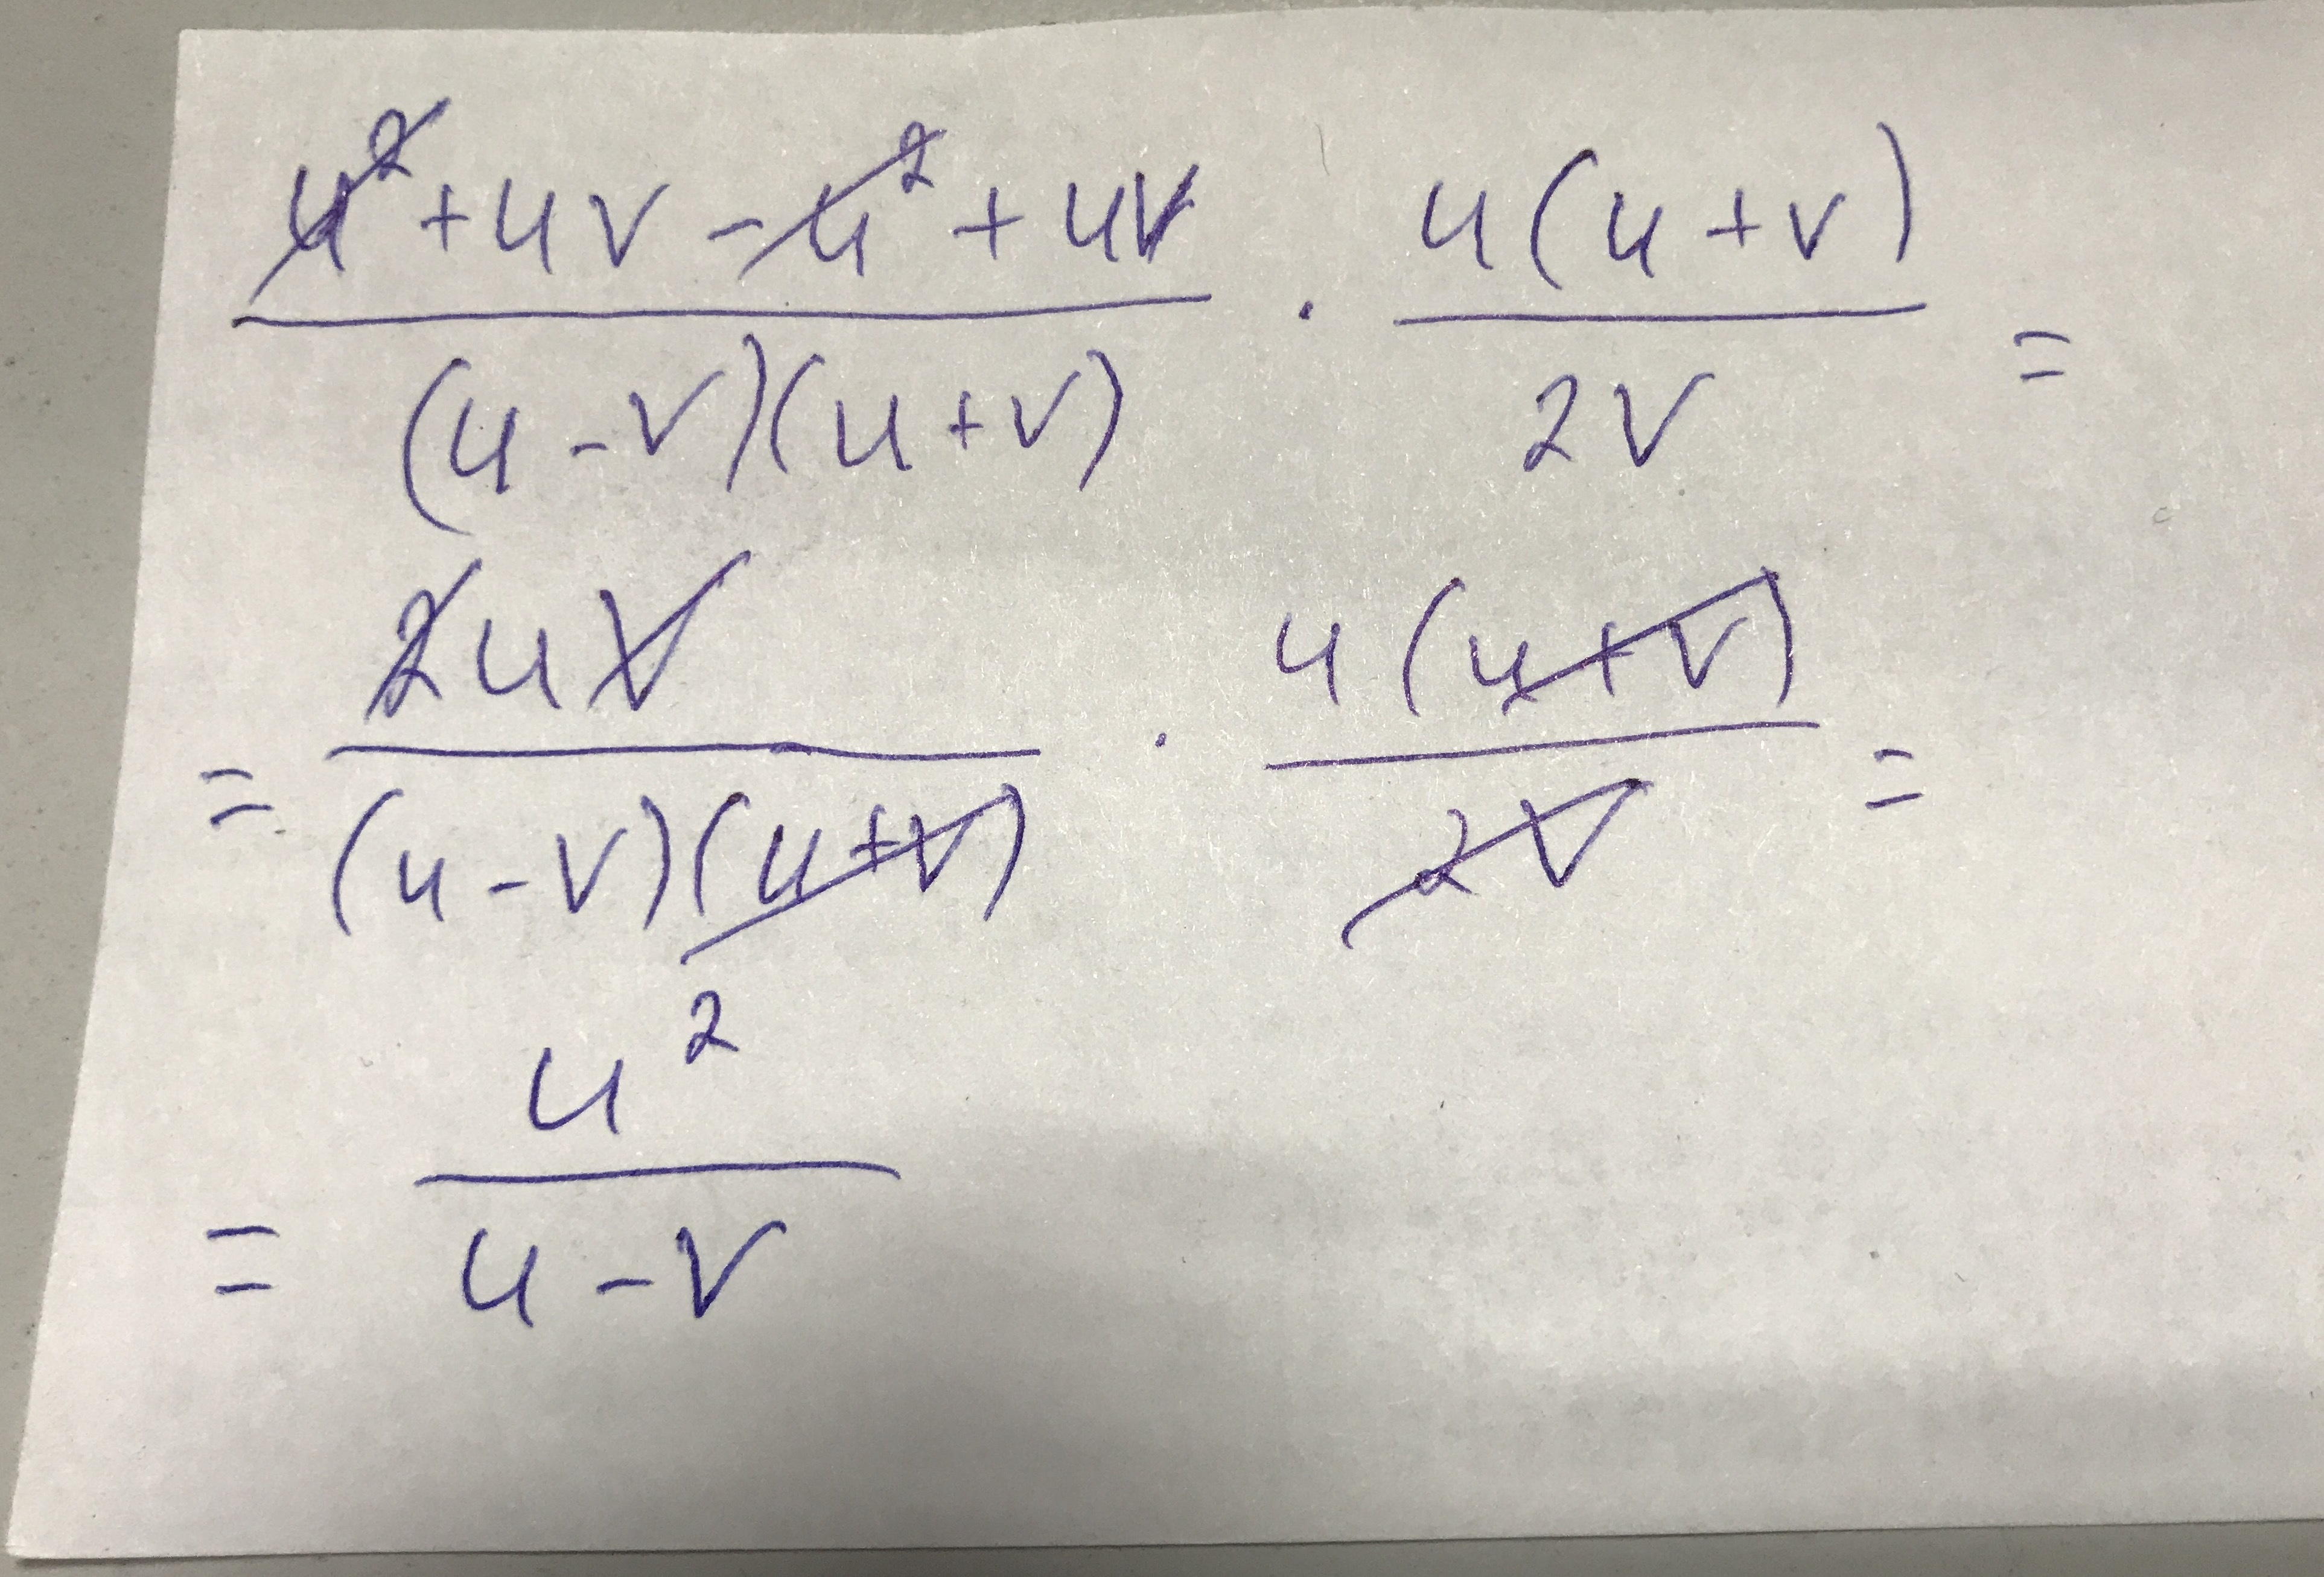 u² + uv - u² + uv / (u - v)(u + v) · u(u + v) / 2v =
= 2uv / (u - v)(u + v) · u(u + v) / 2v =
= u² / u - v